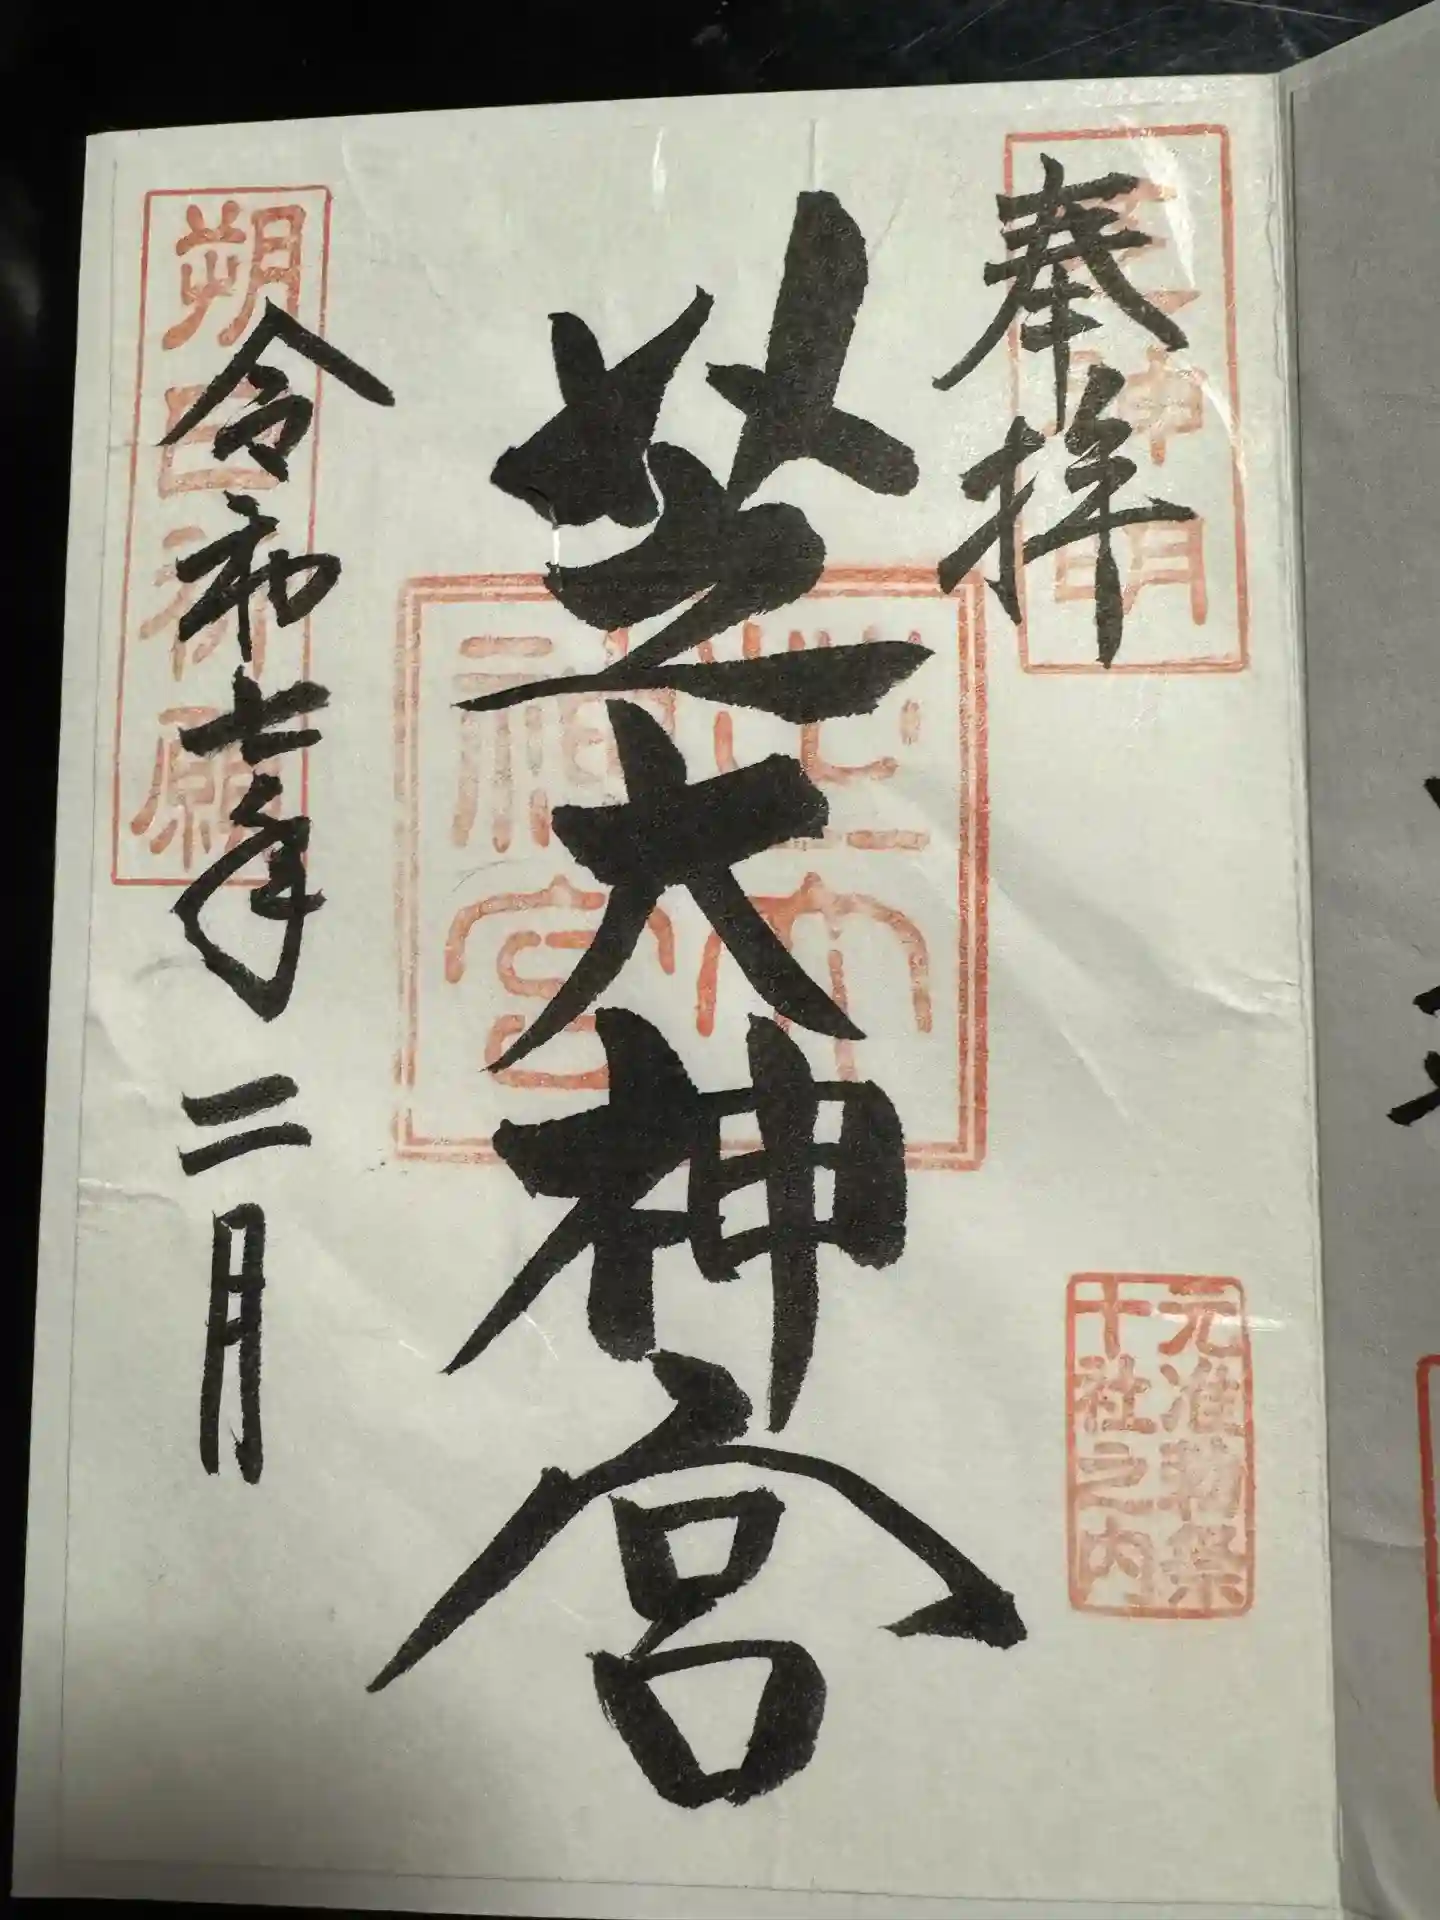 奉拝
芝神明
元准勅祭
十社之内
芝大神宮
芝大
神宮
朔日祈願
令和七年二月